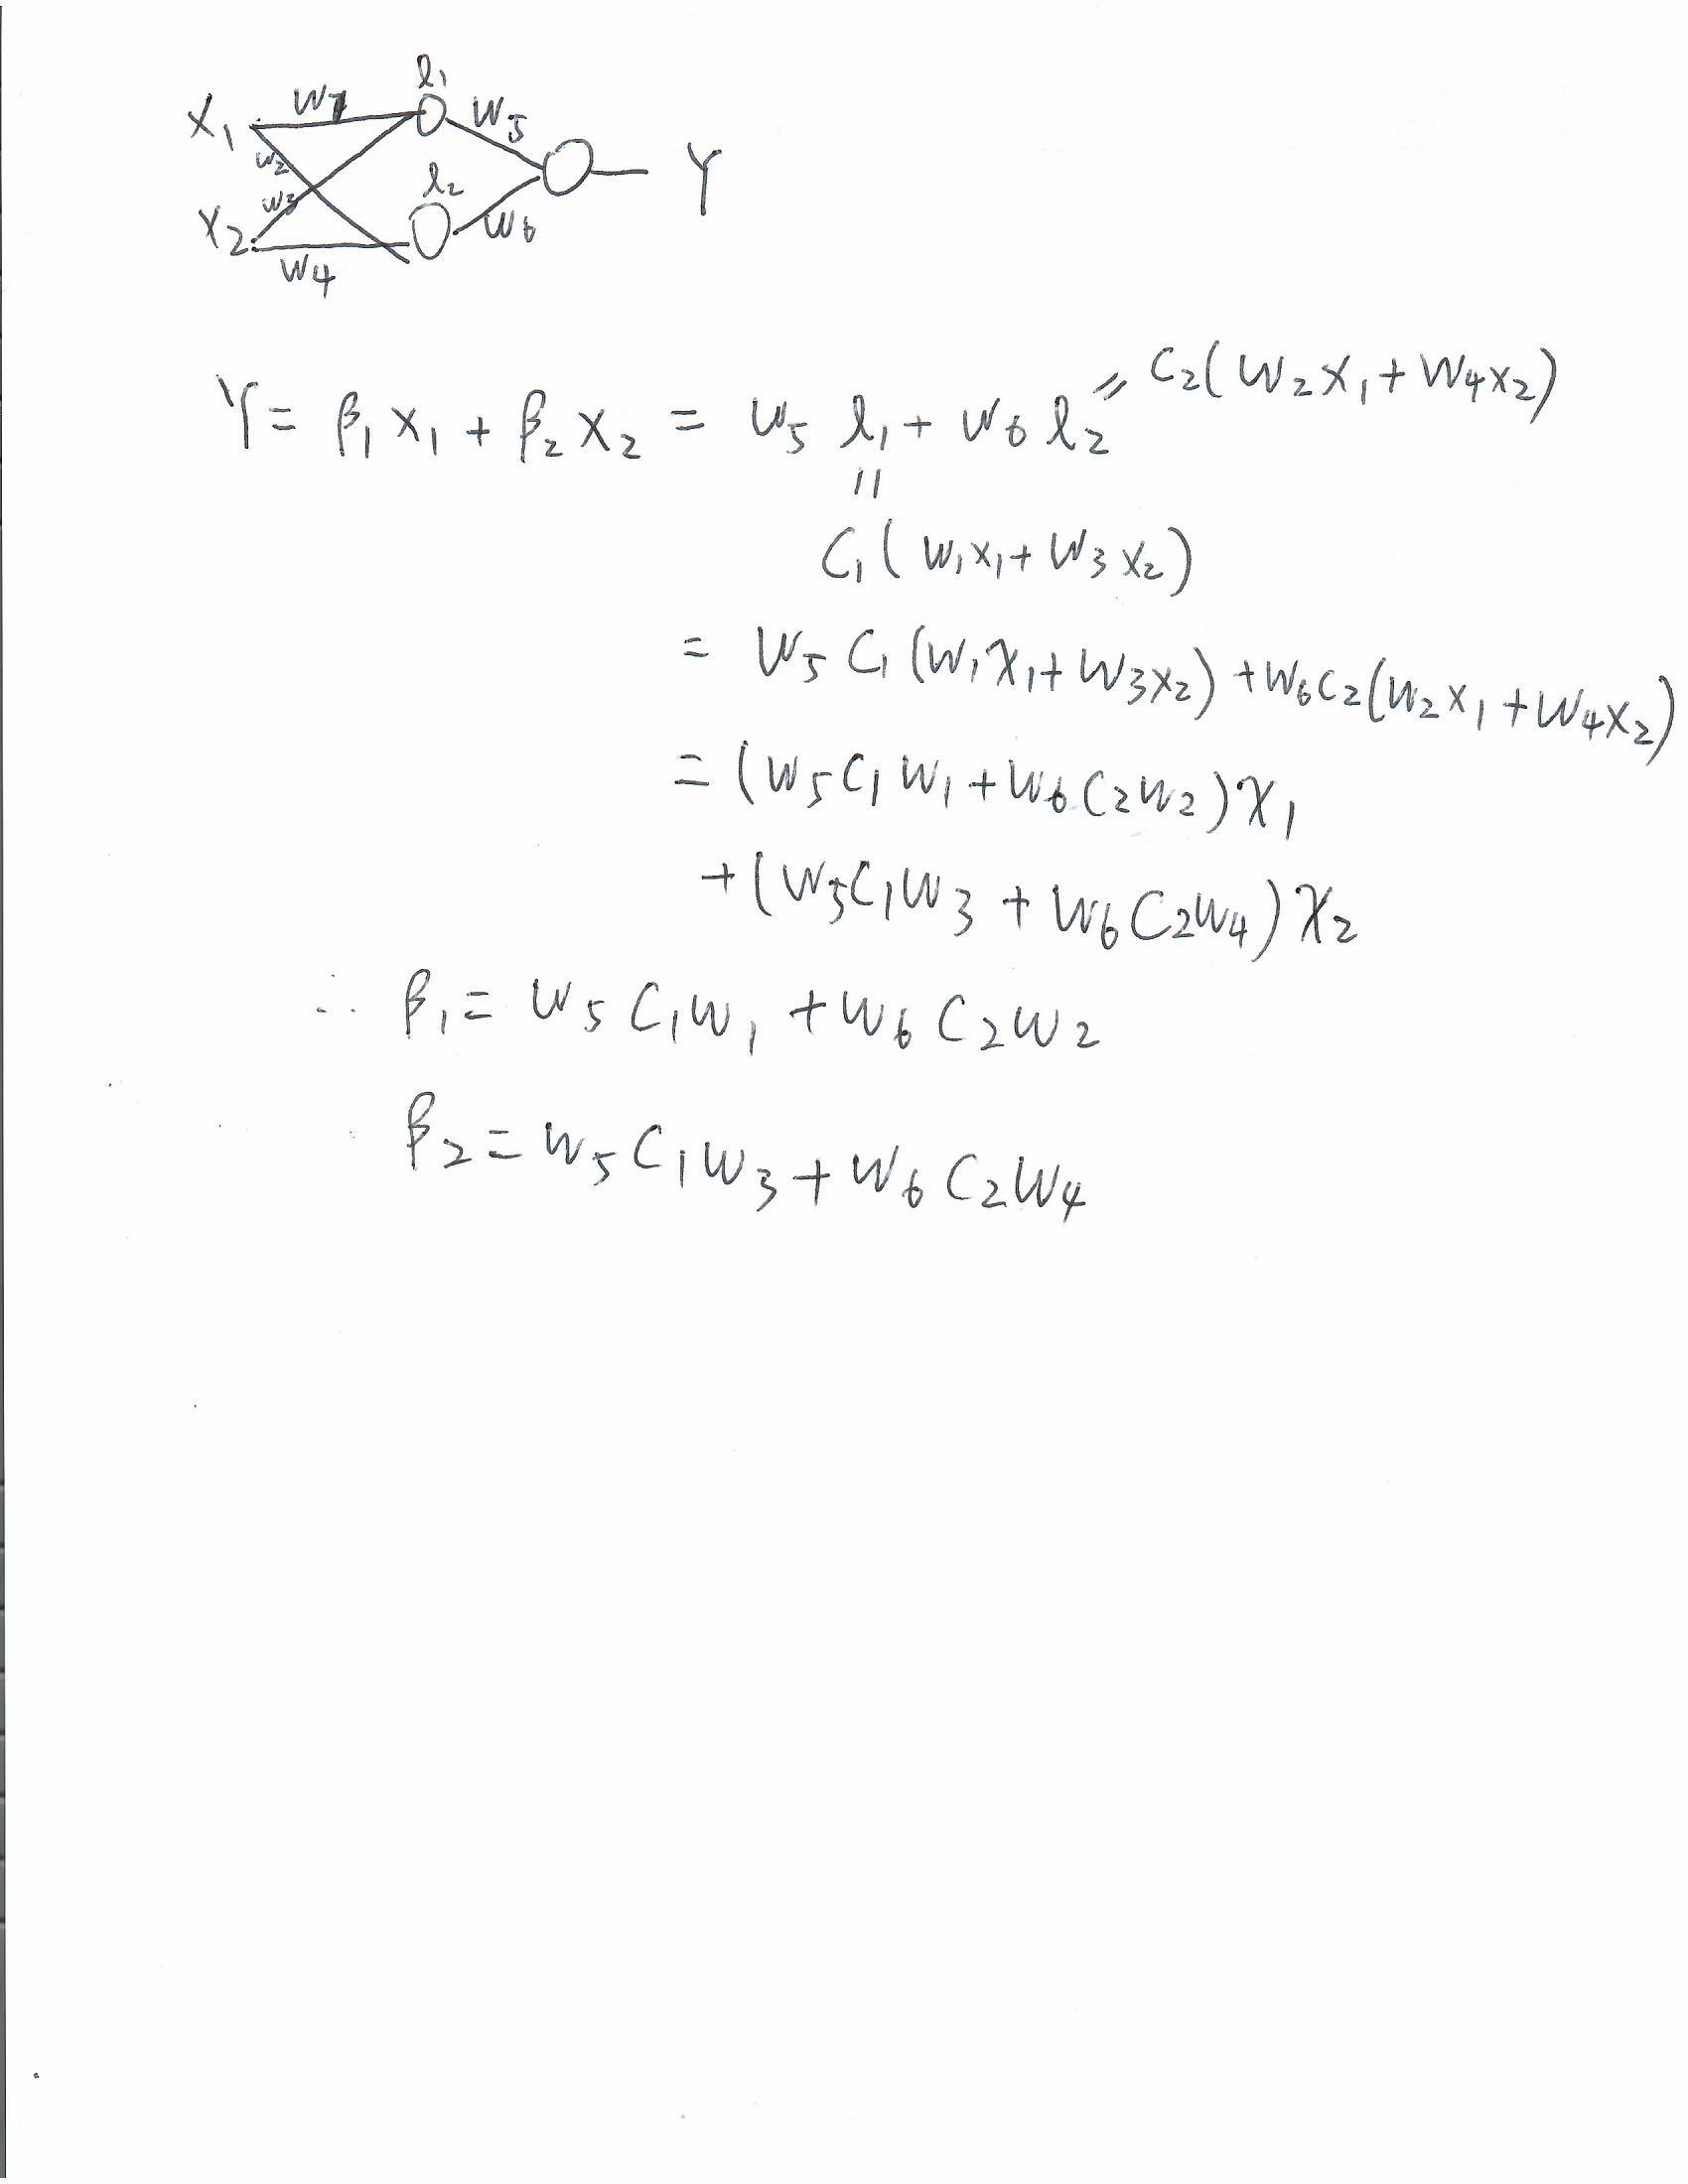 X₁ W1 l₁ W5
w₂ w3 l₂ Y
X₂ W4 W6
Y = β₁ X₁ + β₂ X₂ = W5 l₁ + W6 l₂ = C₂( W₂ X₁ + W4 X₂)
||
C₁( W₁X₁ + W3 X₂)
= W5 C₁ (W₁X₁ + W3X₂) + W6C₂(W₂X₁ + W4X₂)
= (W5C₁ W₁ + W6 C₂W₂)X₁
+ (W5C₁W3 + W6 C₂W4) X₂
∴ β₁ = W5 C₁W₁ + W6 C₂W₂
β₂ = W5 C₁W3 + W6 C₂W4